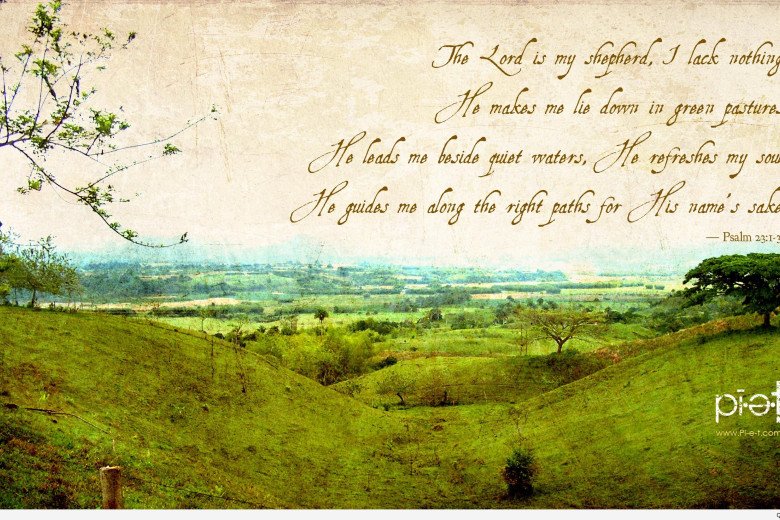 The Lord is my shepherd, I lack nothing
He makes me lie down in green pastures
He leads me beside quiet waters, He refreshes my sou
He guides me along the right paths for His name's sake
— Psalm 23:1-
pi·e·t
www.Pi-e-t.com